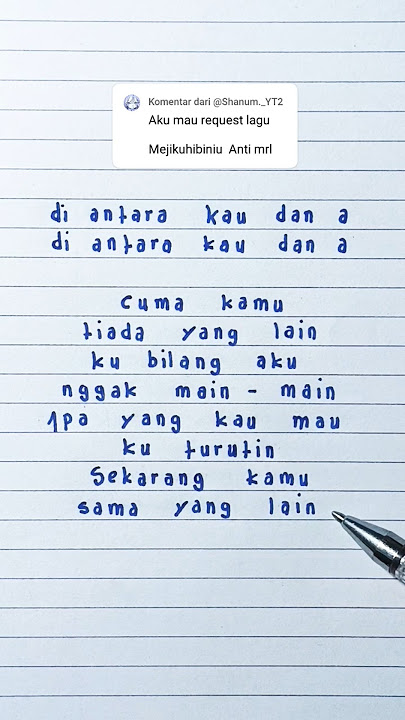 Komentar dari @Shanum._YT2
Aku mau request lagu
Mejikuhibiniu Anti mrl
di antara kau dan a
di antara kau dan a
cuma kamu
tiada yang lain
ku bilang aku
nggak main - main
Apa yang kau mau
ku turutin
Sekarang kamu
sama yang lain